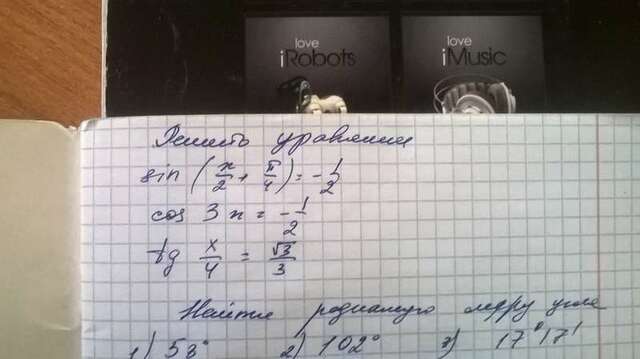 love
iRobots
love
iMusic
Решить уравнения
sin (x/2 + π/4) = -1/2
cos 3x = -1/2
tg x/4 = √3/3
Найти радианную меру угла
1) 53° 2) 102° 3) 17°17'